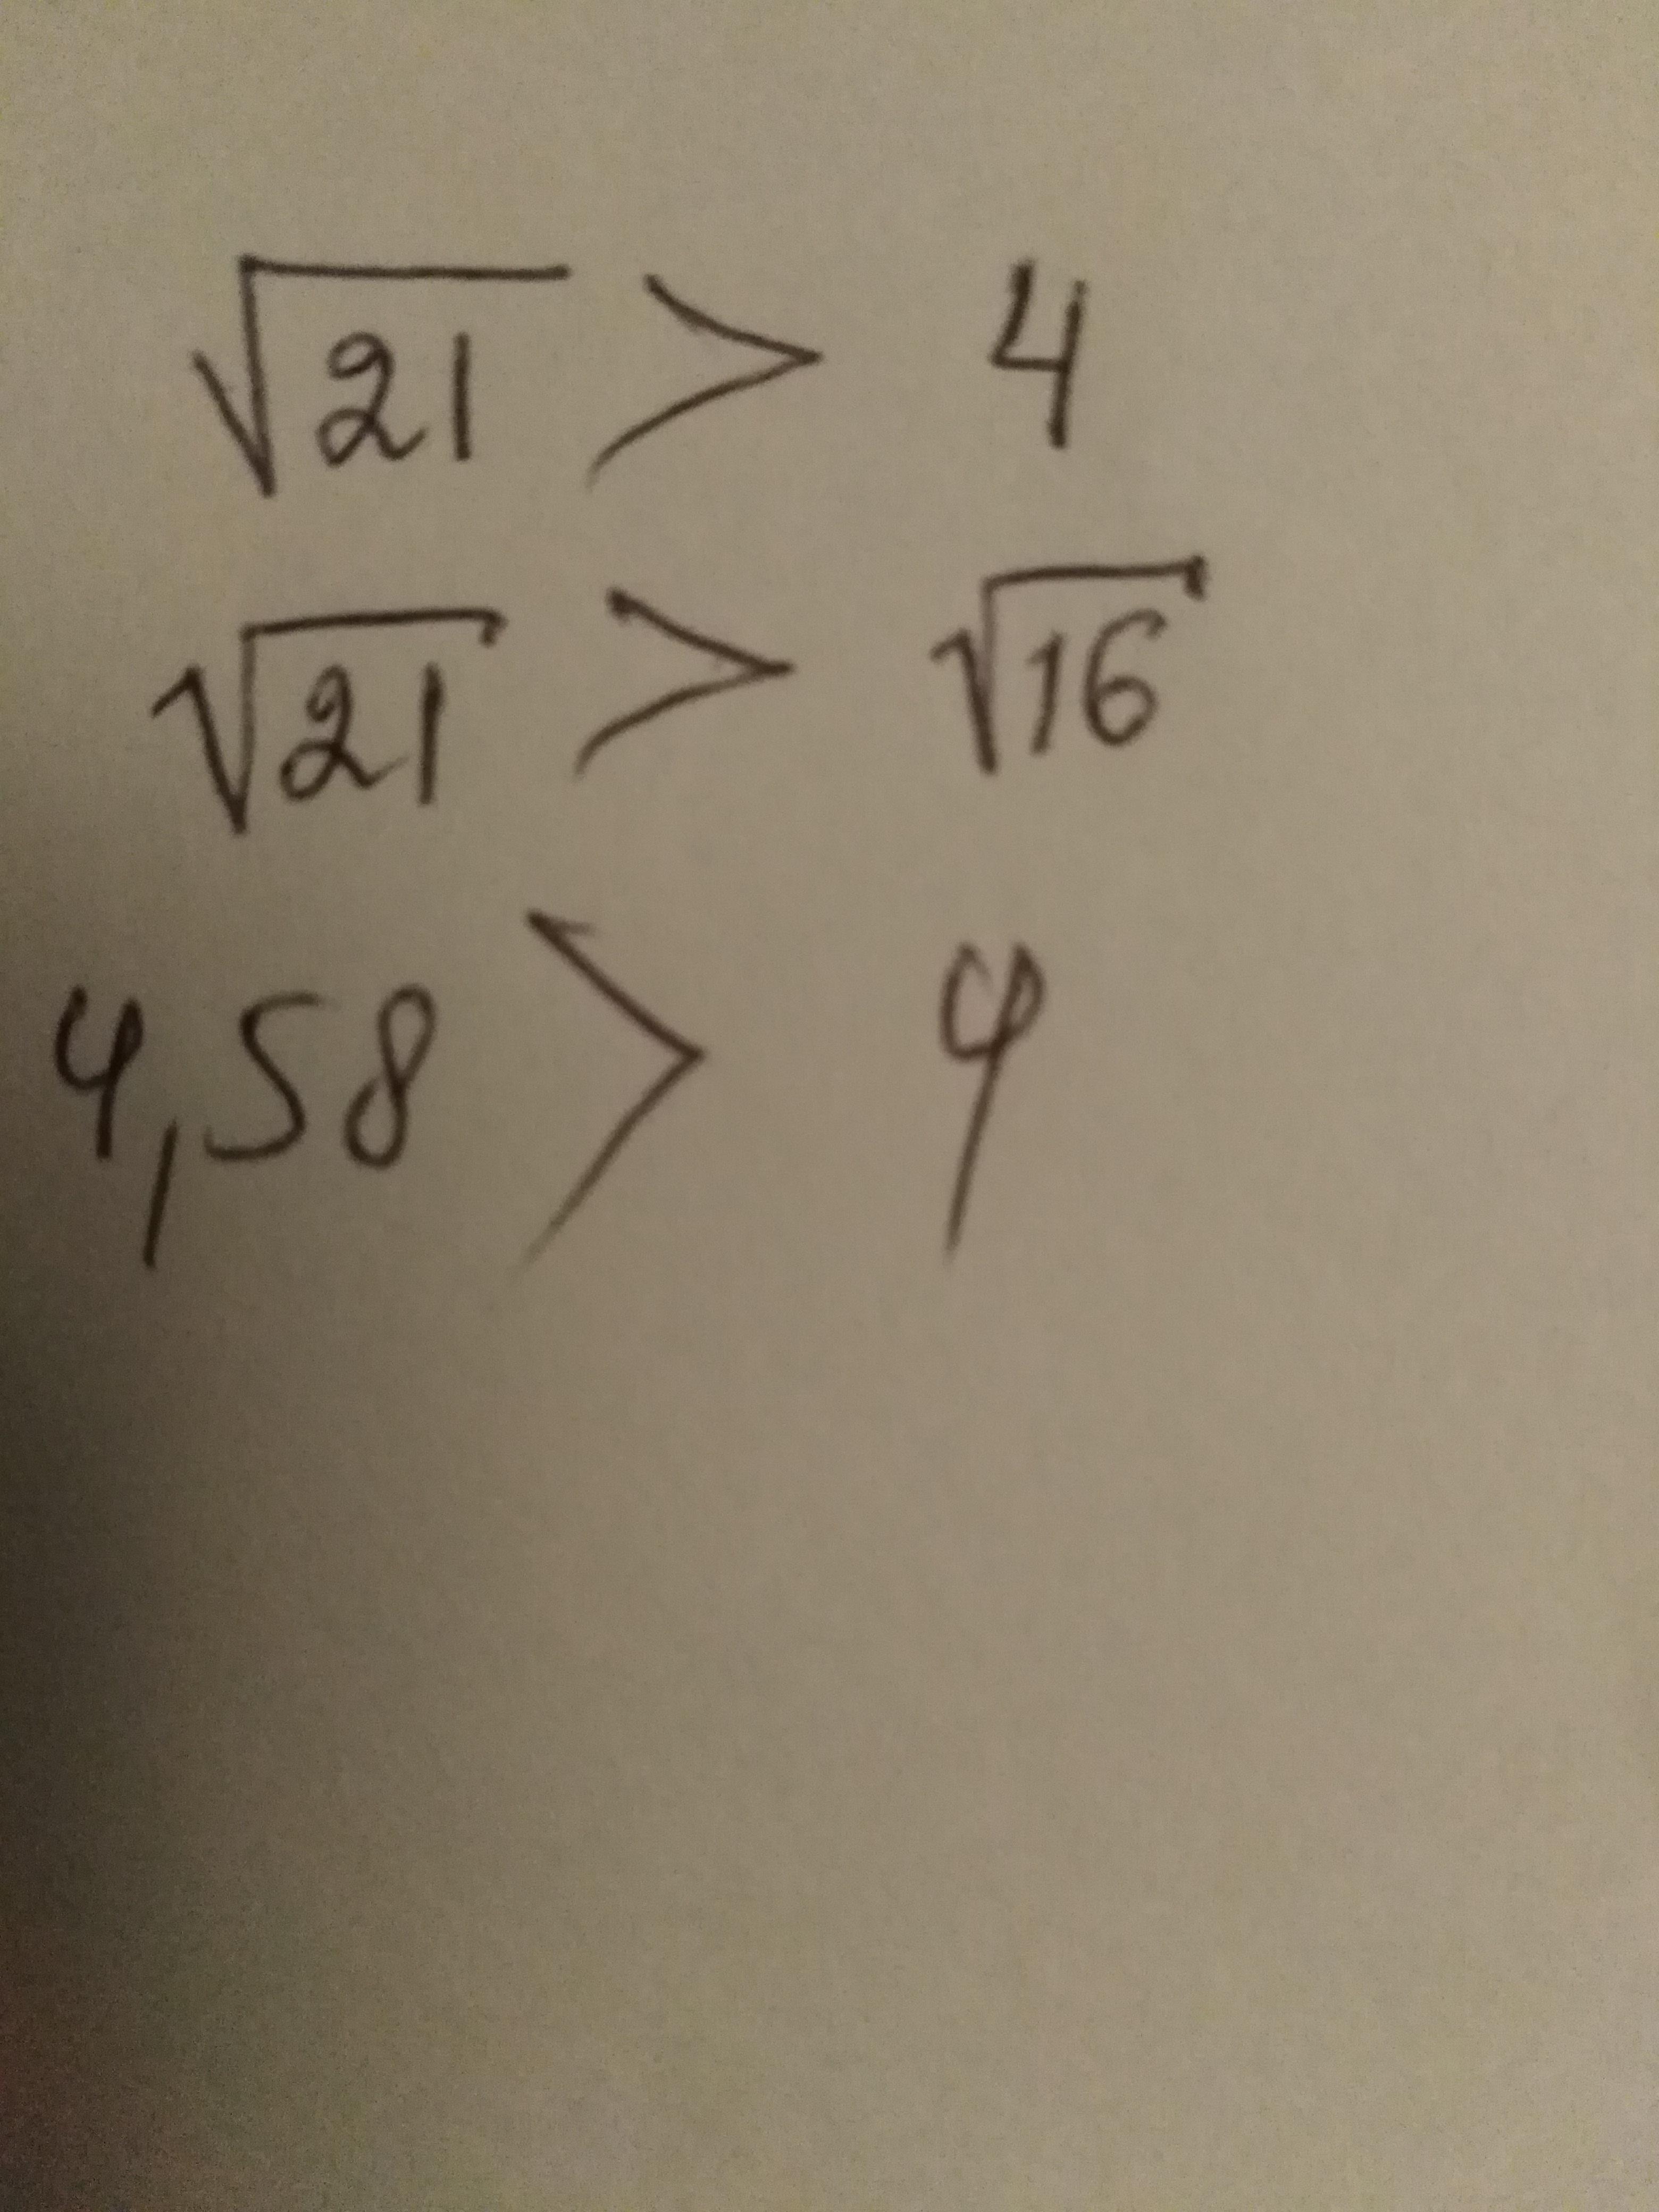 √21 > 4
√21 > √16
4,58 > 4